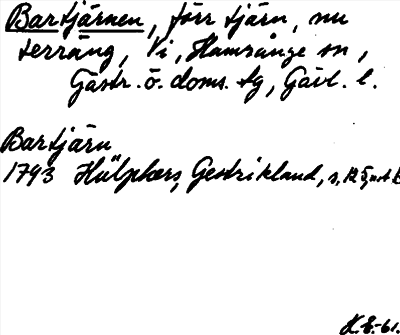 Bartjärnen, förr tjärn, nu
terräng, Vi, Hamrånge sn,
Gästr. ö. doms. tg, Gävl. l.
Bartjärn
1793 Hülphers, Gestrikland, s.
K.E.-61.